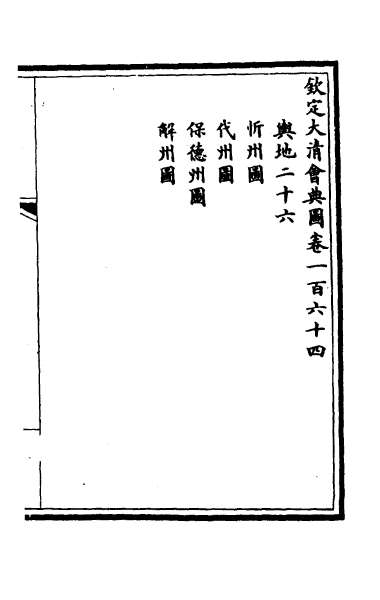 欽定大清會典圖卷一百六十四
輿地二十六
忻州圖
代州圖
保德州圖
解州圖